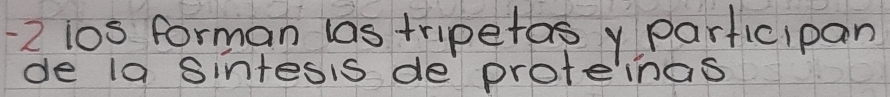 -2 los forman las tripetas y participan
de la síntesis de proteínas